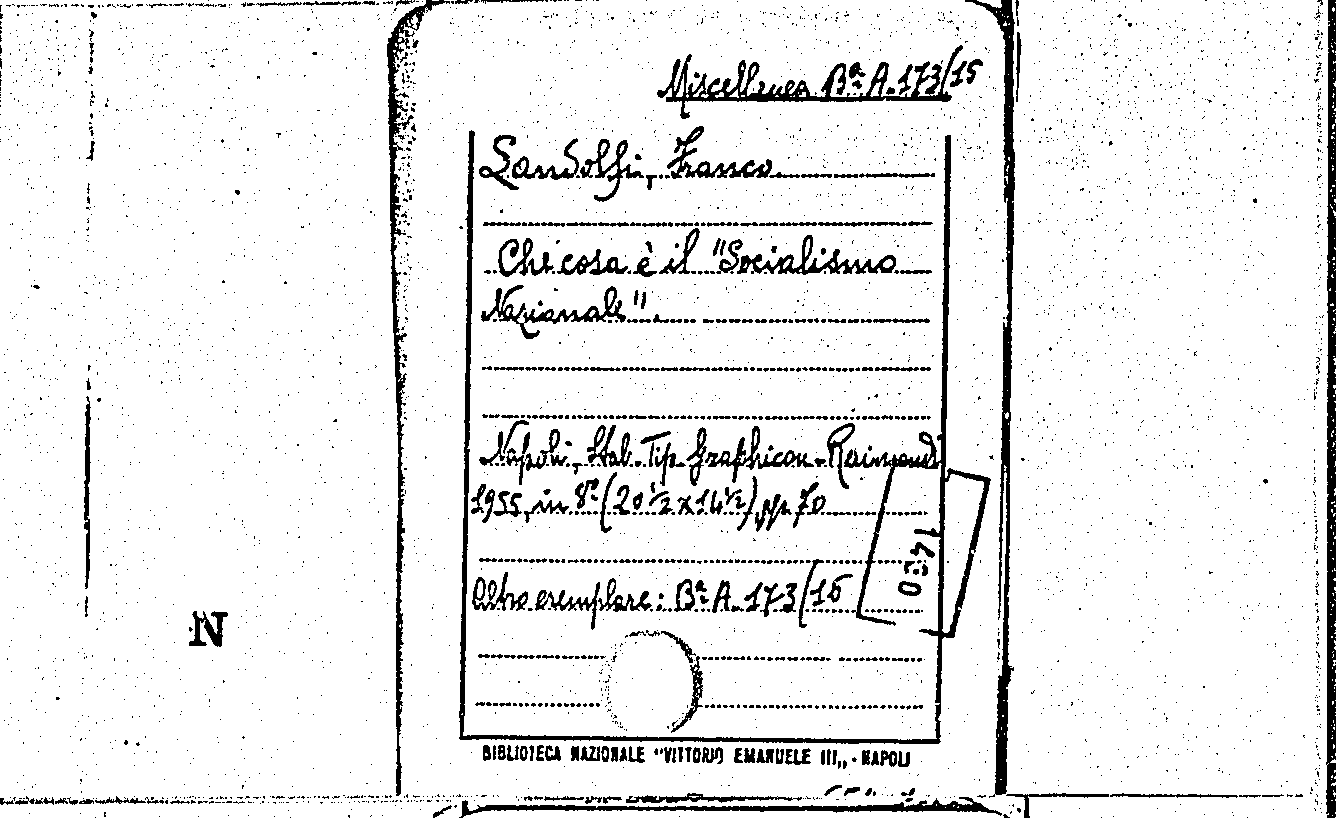 Miscellanea Bª A. 173/15
Landolfi, Franco.
Che cosa è il "Socialismo
Nazionale".
Napoli, Stab. Tip. Graphicon-Raimondi
1955, in 8º (20 ½ x 14 ½), pp. 70
Altro esemplare: Bª A. 173/15
N
BIBLIOTECA NAZIONALE "VITTORIO EMANUELE III„ - NAPOLI